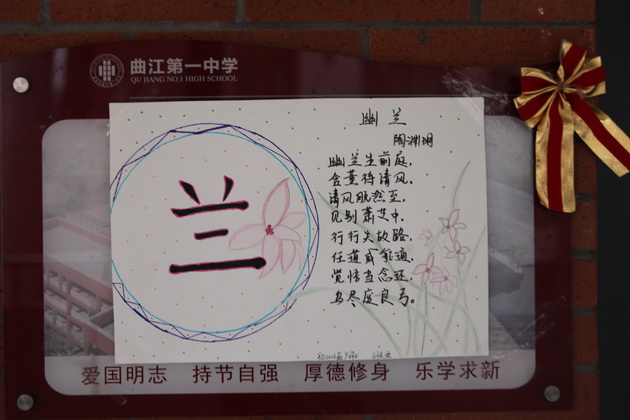 曲江第一中学
QU JIANG NO.1 HIGH SCHOOL
幽兰
陶渊明
兰
幽兰生前庭,
含薰待清风。
清风脱然至,
见别萧艾中。
行行失故路,
任道或能通。
觉悟当念还,
鸟尽废良弓。
爱国明志 持节自强 厚德修身 乐学求新